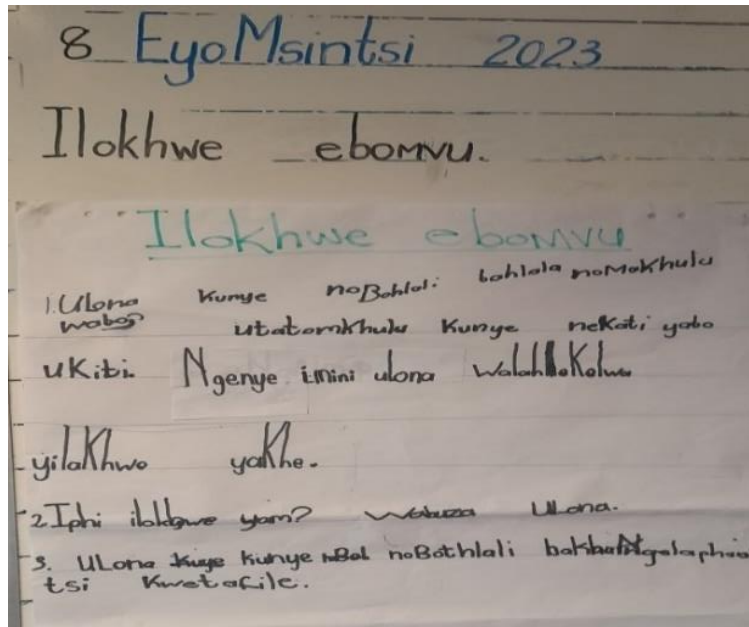 8 EyoMsintsi 2023
Ilokhwe ebomvu.
Ilokhwe ebomvu
1. Ulona kunye noBohlali bahlala noMakhulu
wabo utatomkhulu kunye nekati yabo
uKiti. Ngenye imini ulona
yilakhwo yakhe.
2 Iphi yam? Wabuza Ulona.
3. ULona kunye noBothlali
tsi Kwetafile.